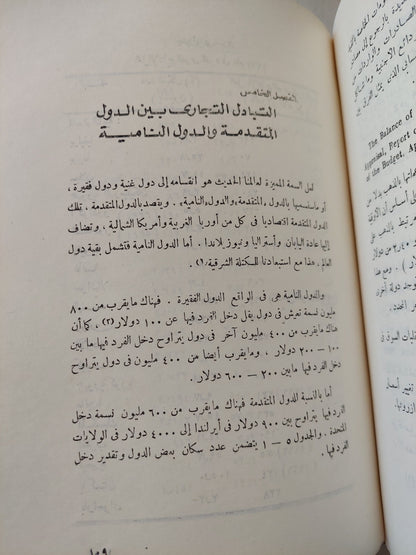 الفصل الخامس
التبادل التجارى بين الدول
المتقدمة والدول النامية
لعل السمة المميزة لعالمنا الحديث هو انقسامه إلى دول غنية ودول فقيرة ،
أو ماتسميها بالدول المتقدمة والدول النامية . ويقصد بالدول المتقدمة ، تلك
الدول المتقدمة اقتصاديا فى كل من أوربا الغربية وأمريكا الشمالية ، وتضاف
إليها عادة اليابان وأستراليا ونيوزيلاندا . أما الدول النامية فتشمل بقية دول
العالم ، هذا مع استبعادنا للكتلة الشرقية (١) .
والدول النامية هى فى الواقع الدول الفقيرة . فهناك مايقرب من ٨٠٠
مليون نسمة تعيش فى دول يقل دخل الفرد فيها عن ١٠٠ دولار (٢) ، كما أن
هناك مايقرب من ٤٠٠ مليون آخر فى دول دخل الفرد فيها ما بين
١٠٠ — ٢٠٠ دولار ، ومايقرب أيضا من ٤٠٠ مليون فى دول يتراوح
دخل الفرد فيها مابين ٢٠٠ — ٦٠٠ دولار .
أما بالنسبة للدول المتقدمة فهناك مايقرب من ٦٠٠ مليون نسمة دخل
الفرد فيها يتراوح بين ٩٠٠ دولار فى أيرلندا إلى ٤٠٠٠ دولار فى الولايات
المتحدة . والجدول ٥ — ١ يتضمن عدد سكان بعض الدول وتقدير دخل
الفرد فيها .
١٥٩
The Balance of
Appraisal, Report
of the Budget, Ap